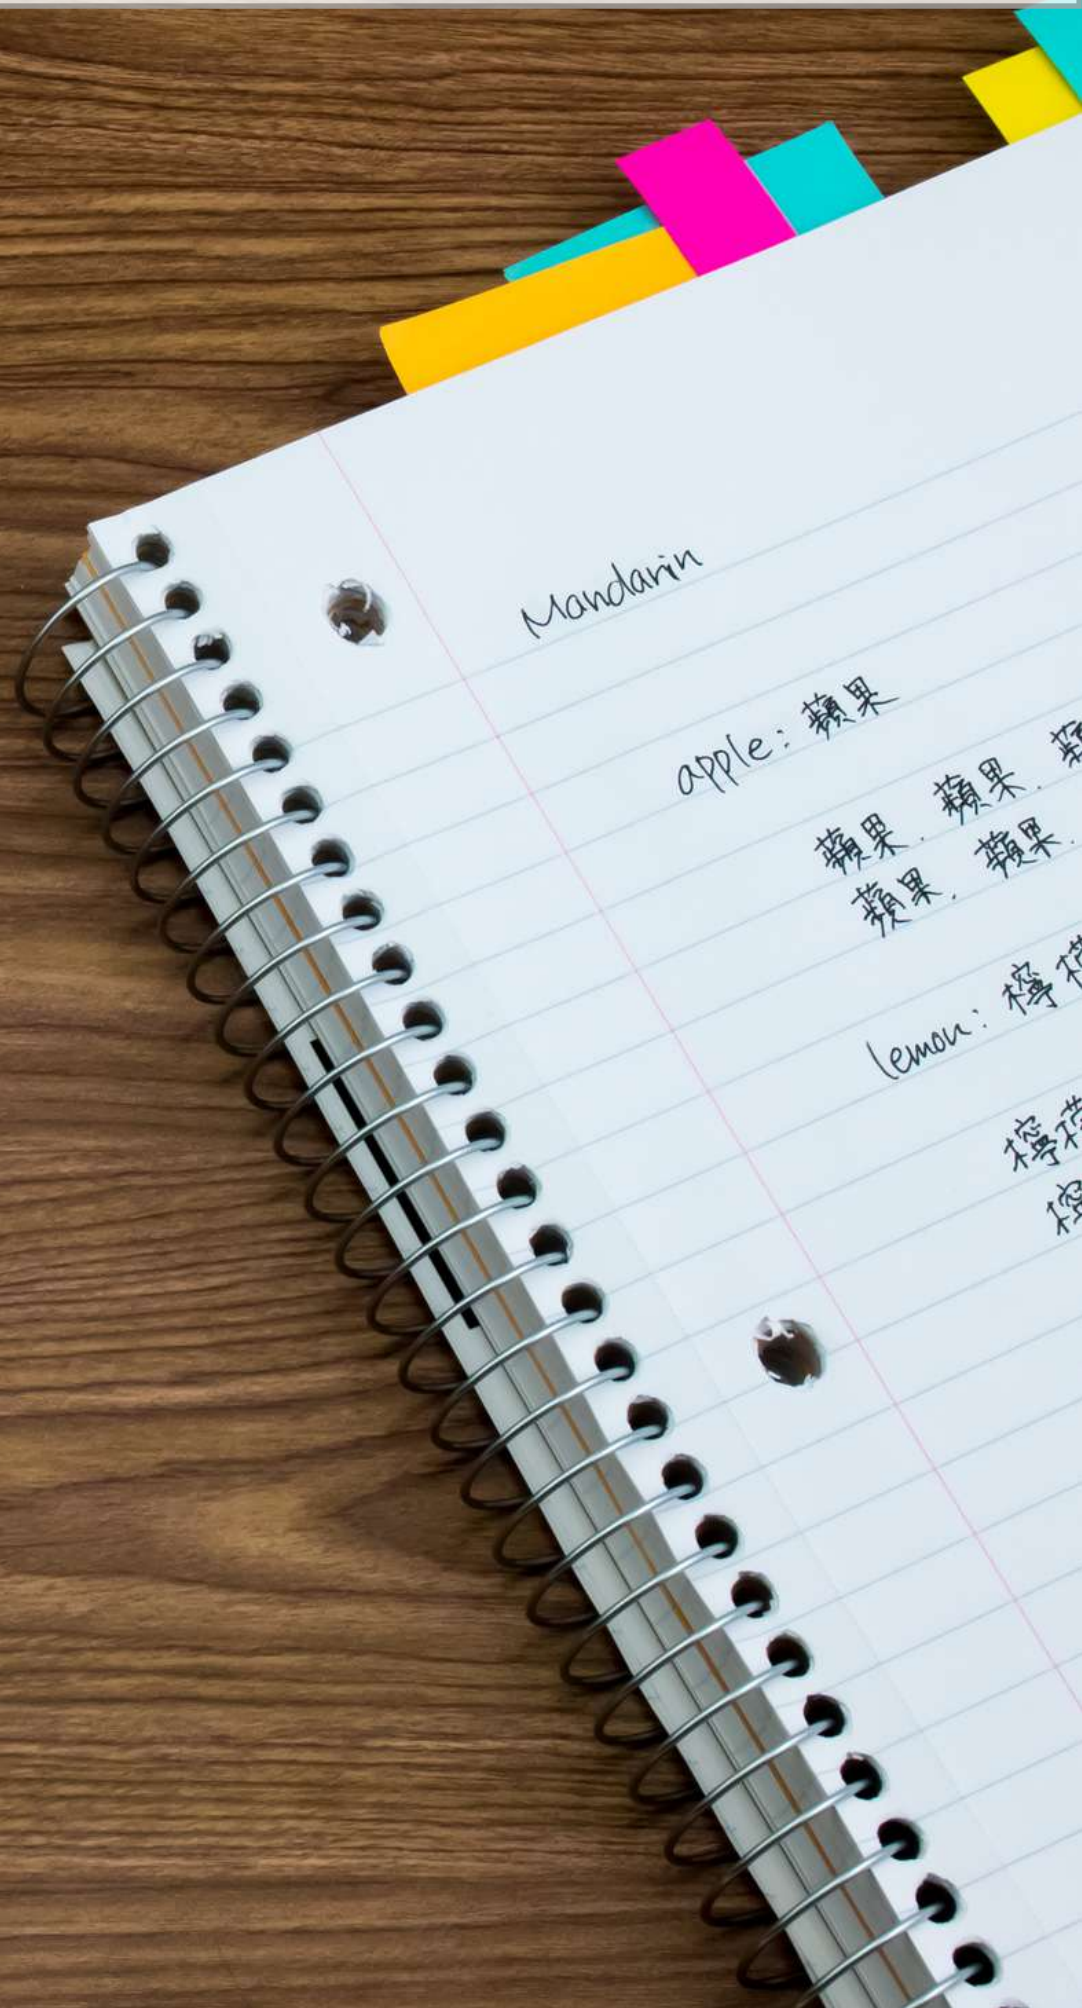 Mandarin
apple: 蘋果
蘋果. 蘋果. 蘋
蘋果. 蘋果.
lemon: 檸檬
檸檬
檸